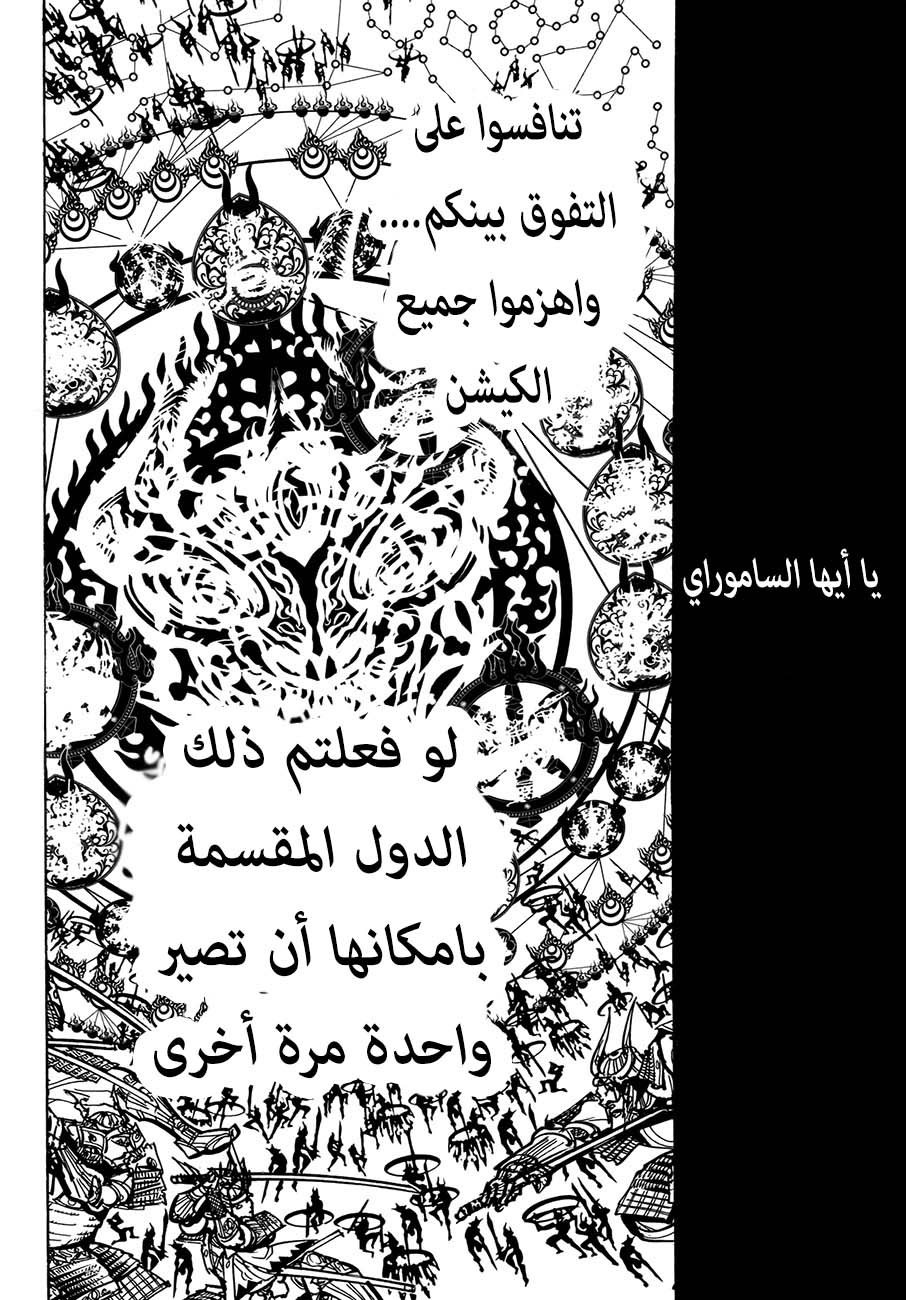 يا أيها الساموراي
تنافسوا على
التفوق بينكم....
واهزموا جميع
الكيشن
لو فعلتم ذلك
الدول المقسمة
بامكانها أن تصير
واحدة مرة أخرى